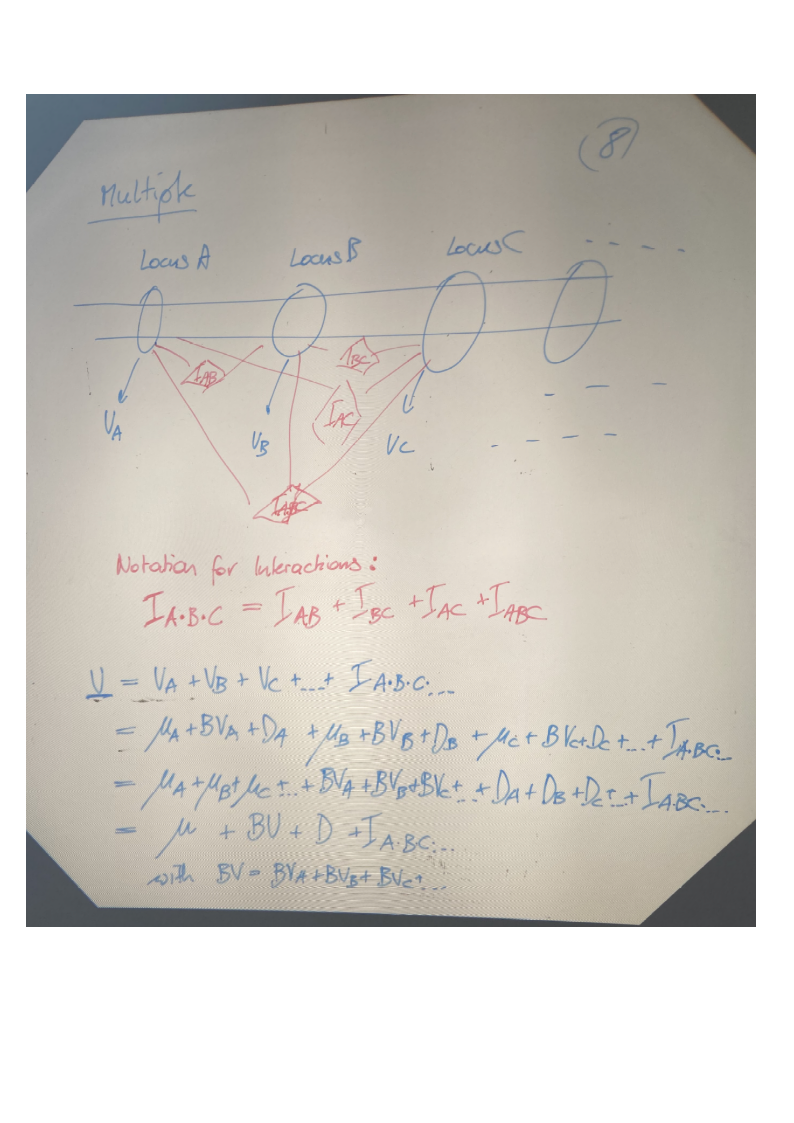 (8)
Multiple
Locus A Locus B Locus C - - - -
I_AB I_BC
I_AC
V_A V_B V_C - - - -
I_ABC
Notation for Interactions:
I_A·B·C = I_AB + I_BC + I_AC + I_ABC
V = V_A + V_B + V_C + ... + I_A·B·C...
= μ_A + BV_A + D_A + μ_B + BV_B + D_B + μ_C + BV_C + D_C + ... + I_A·B·C...
= μ_A + μ_B + μ_C + ... + BV_A + BV_B + BV_C + ... + D_A + D_B + D_C + ... + I_A·B·C...
= μ + BV + D + I_A·B·C...
with BV = BV_A + BV_B + BV_C + ...